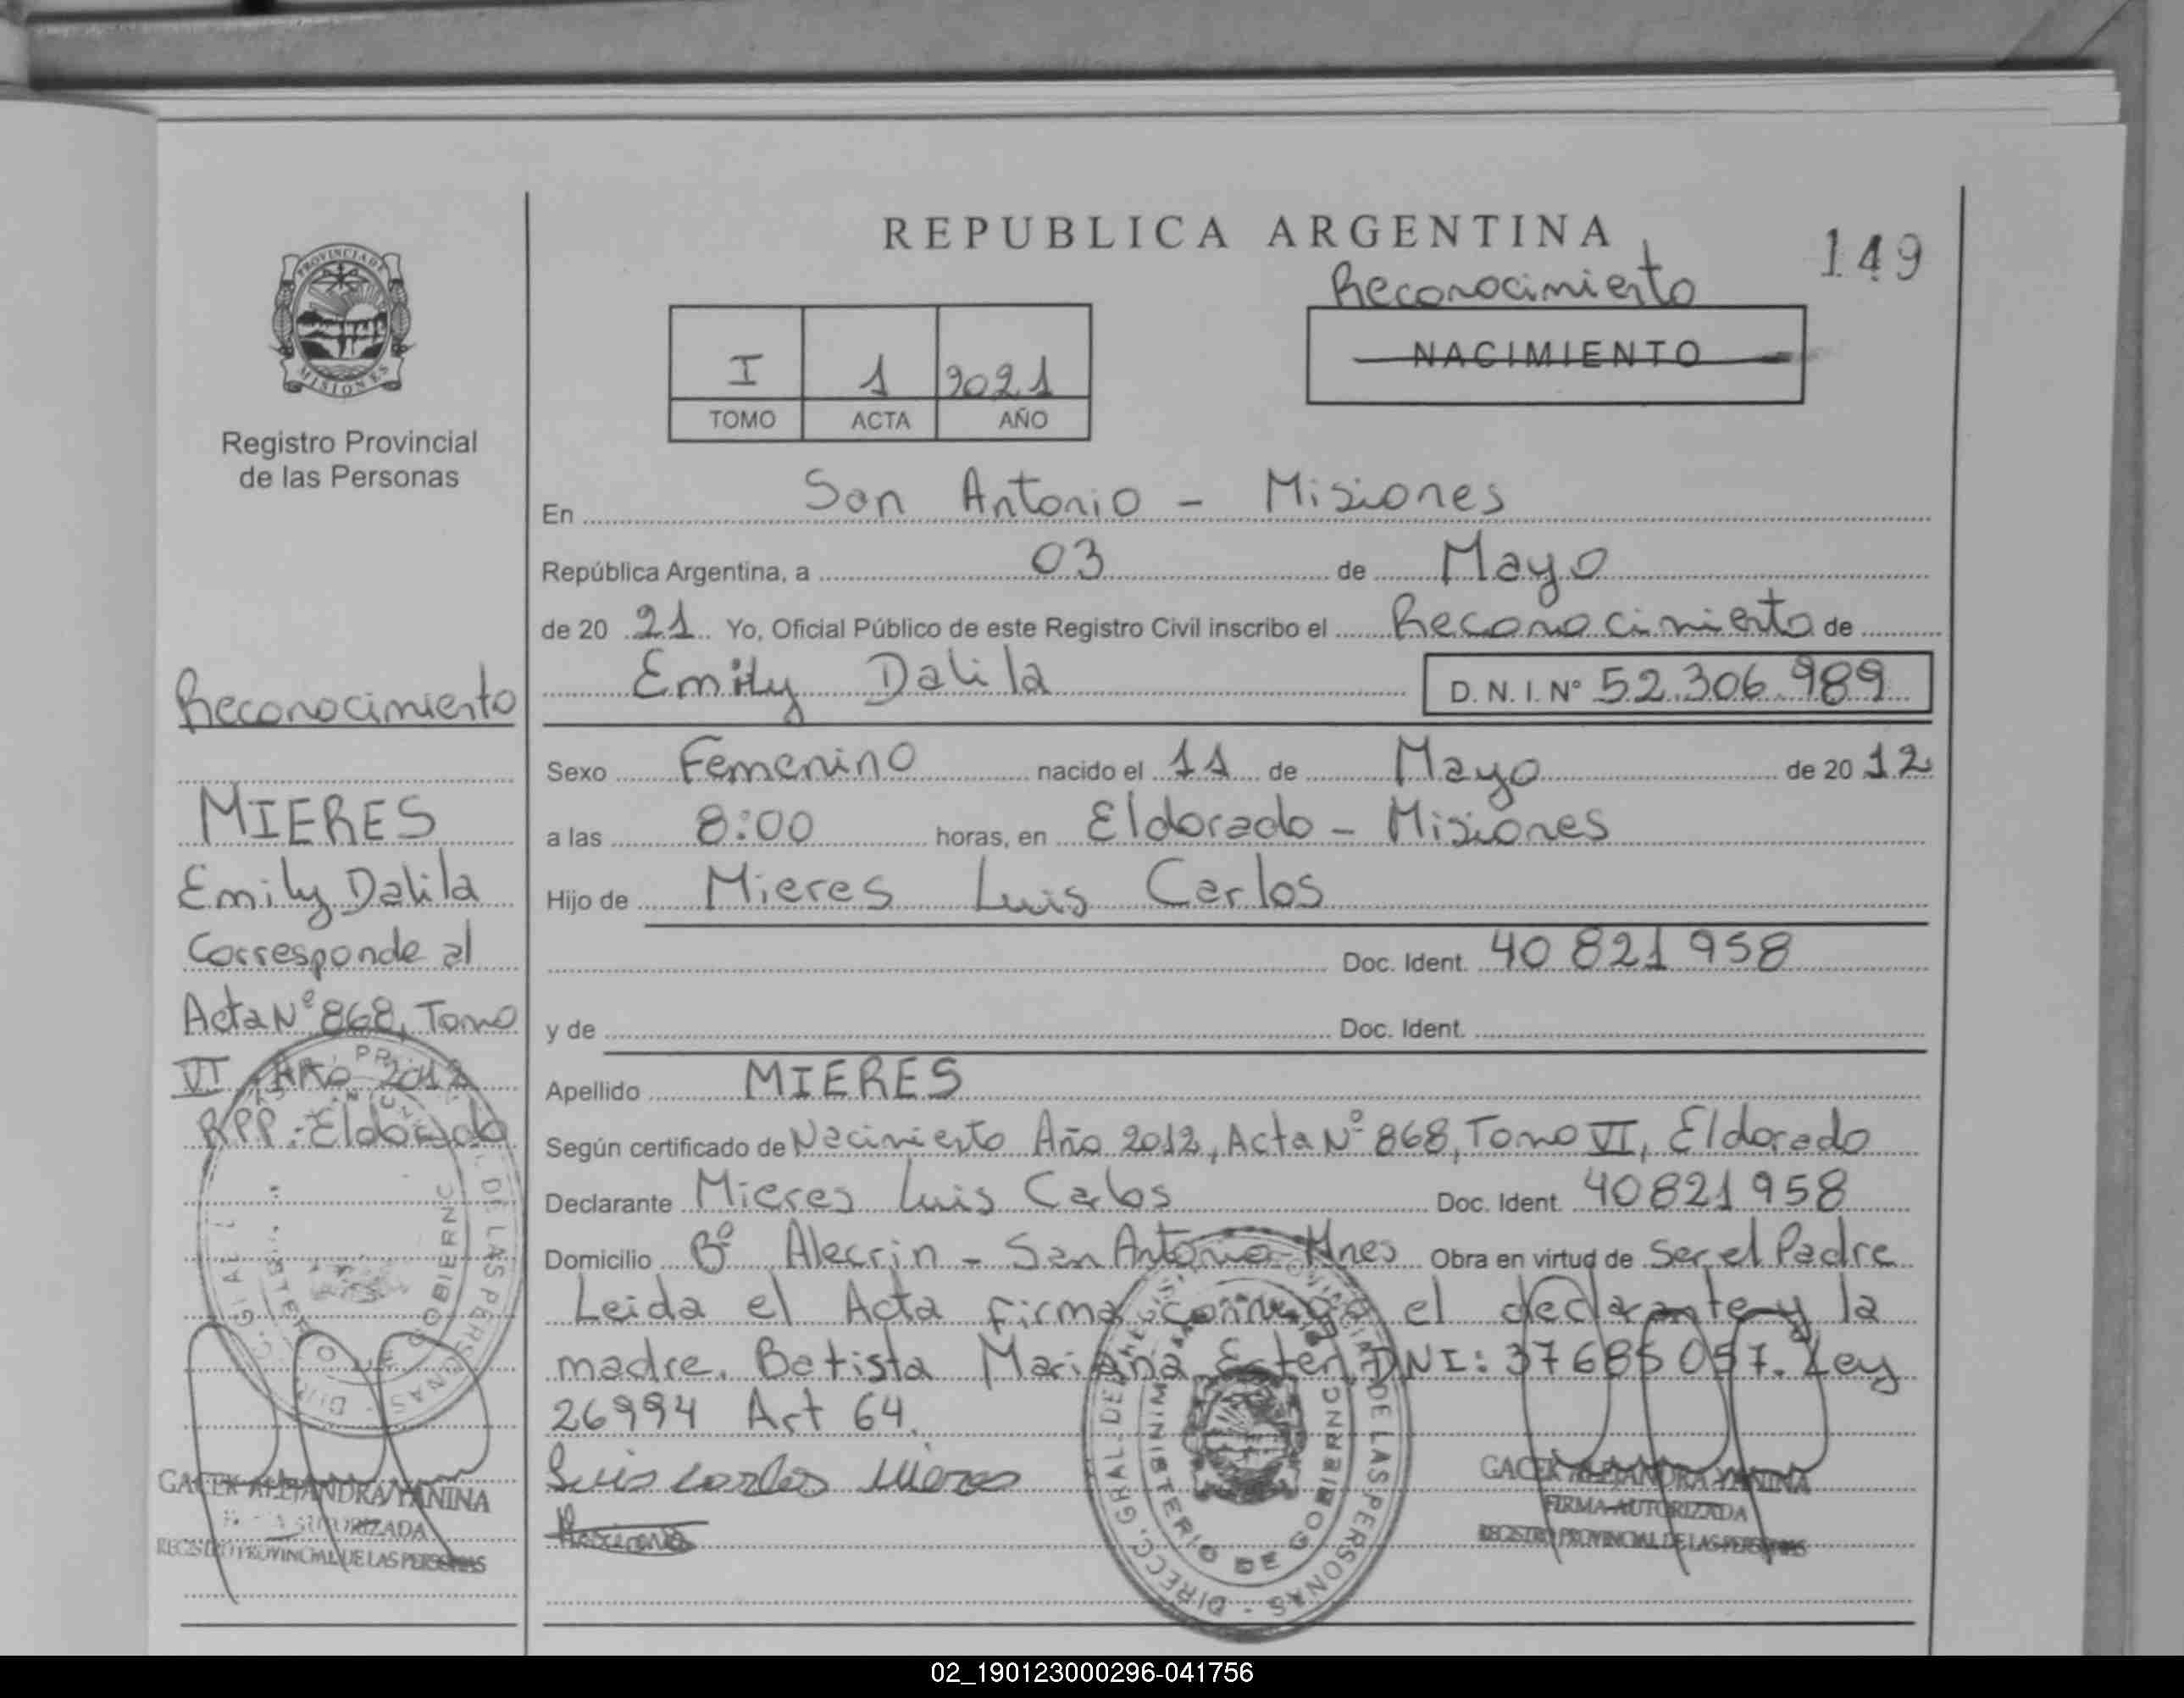 REPUBLICA ARGENTINA
149
Reconocimiento
NACIMIENTO
I 1 2021
TOMO ACTA AÑO
PROVINCIA DE
MISIONES
Registro Provincial
de las Personas
En San Antonio - Misiones
República Argentina, a 03 de Mayo
de 20 21 Yo, Oficial Público de este Registro Civil inscribo el Reconocimiento de
Emily Dalila D.N.I. Nº 52.306.989
Sexo Femenino nacido el 11 de Mayo de 20 12
a las 8:00 horas, en Eldorado - Misiones
Hijo de Mieres Luis Carlos
Doc. Ident. 40 821 958
y de Doc. Ident.
Apellido MIERES
Según certificado de Nacimiento Año 2012, Acta Nº 868, Tomo VI, Eldorado
Declarante Mieres Luis Carlos Doc. Ident. 40821958
Domicilio Bº Alecrin - San Antonio - Mnes Obra en virtud de Ser el Padre
Leida el Acta firma conmigo el declarante y la
madre. Batista Mariana Ester DNI: 37685057. Ley
26994 Art 64.
Luis Carlos Mieres
GACEK ALEJANDRA YANINA
FIRMA AUTORIZADA
REGISTRO PROVINCIAL DE LAS PERSONAS
DE LAS PERSONAS - DIRECC. GRAL. DEL
MINISTERIO DE GOBIERNO
Reconocimiento
MIERES
Emily Dalila
Corresponde al
Acta Nº 868, Tomo
VI Año 2012
RPP.- Eldorado
DE LAS PERSONAS
GOBIERNO
GACEK ALEJANDRA YANINA
AUTORIZADA
REGISTRO PROVINCIAL DE LAS PERSONAS
02_190123000296-041756